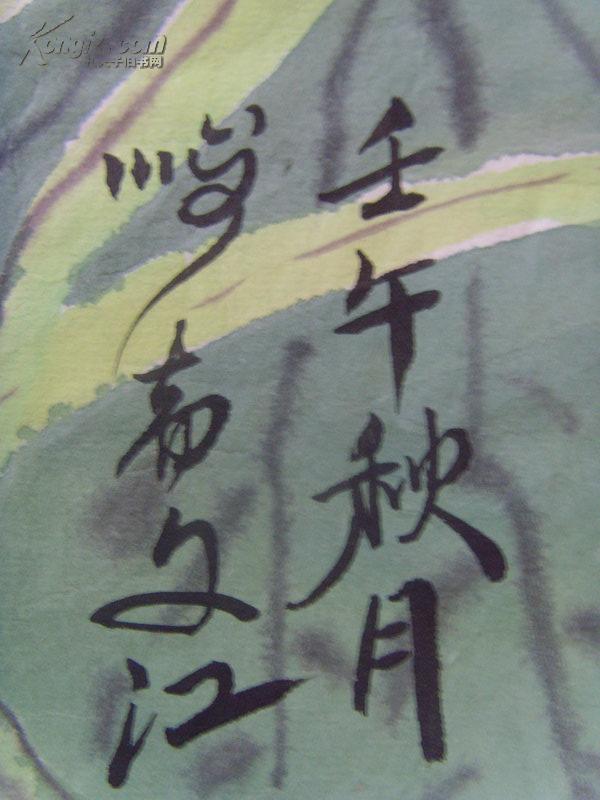 Kongfz.com
孔夫子旧书网
壬午秋月
文江